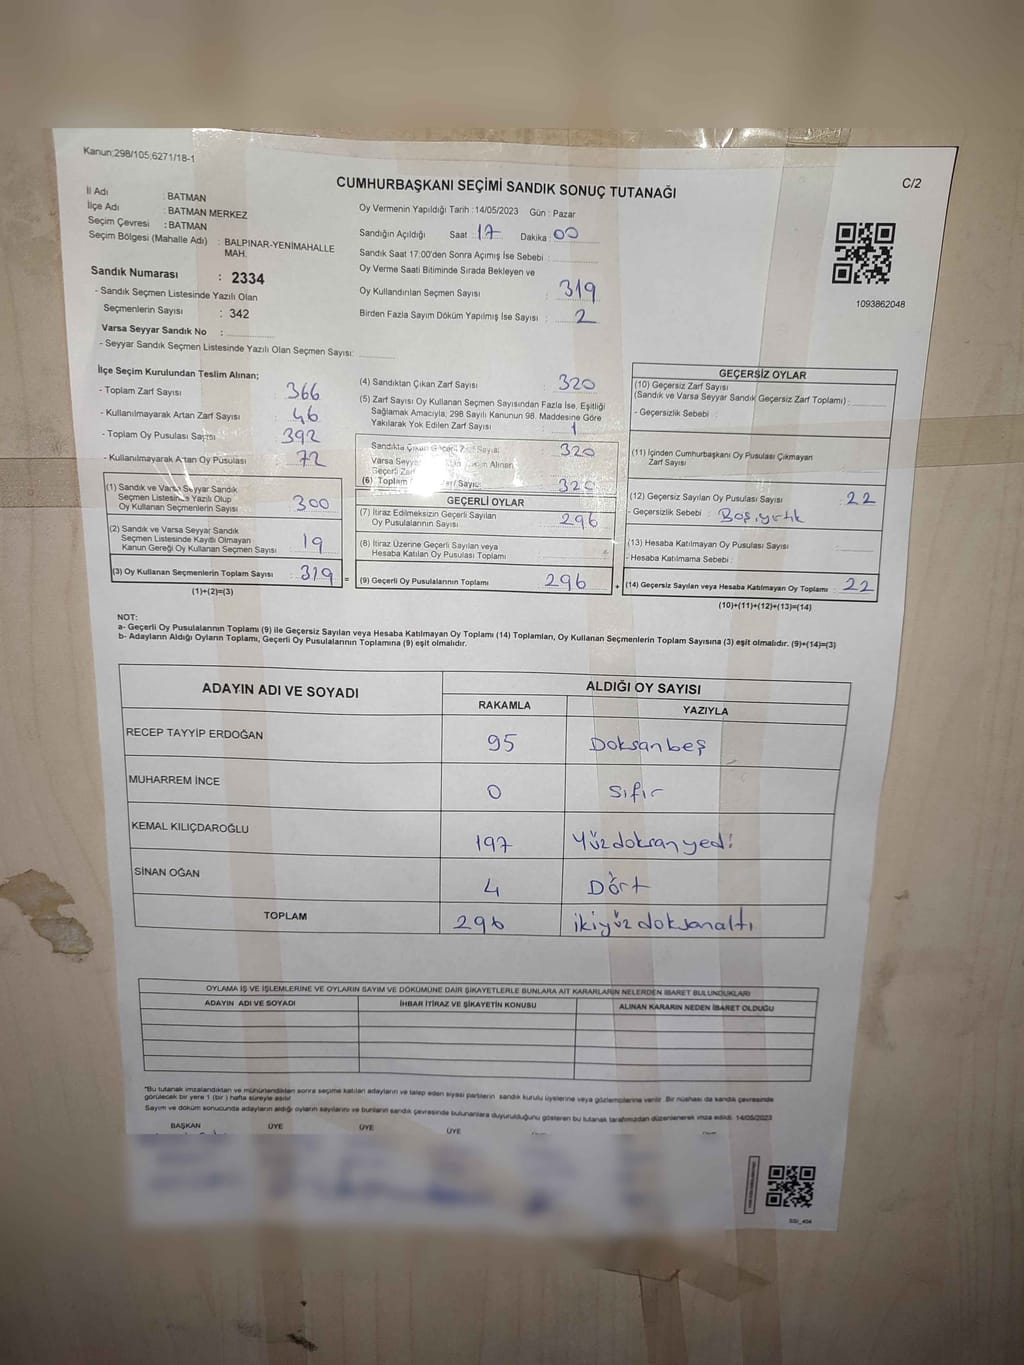 Kanun;298/105;6271/18-1
CUMHURBAŞKANI SEÇİMİ SANDIK SONUÇ TUTANAĞI
C/2
İl Adı : BATMAN
İlçe Adı : BATMAN MERKEZ
Seçim Çevresi : BATMAN
Seçim Bölgesi (Mahalle Adı) : BALPINAR-YENİMAHALLE MAH.
Sandık Numarası : 2334
- Sandık Seçmen Listesinde Yazılı Olan
Seçmenlerin Sayısı : 342
Varsa Seyyar Sandık No :
- Seyyar Sandık Seçmen Listesinde Yazılı Olan Seçmen Sayısı:
Oy Vermenin Yapıldığı Tarih : 14/05/2023 Gün : Pazar
Sandığın Açıldığı Saat : 17 Dakika : 00
Sandık Saat 17:00'den Sonra Açımış İse Sebebi :
Oy Verme Saati Bitiminde Sırada Bekleyen ve
Oy Kullandırılan Seçmen Sayısı : 319
Birden Fazla Sayım Döküm Yapılmış İse Sayısı : 2
1093862048
İlçe Seçim Kurulundan Teslim Alınan;
- Toplam Zarf Sayısı : 366
- Kullanılmayarak Artan Zarf Sayısı : 46
- Toplam Oy Pusulası Sayısı : 392
- Kullanılmayarak Artan Oy Pusulası : 72
(1) Sandık ve Varsa Seyyar Sandık
Seçmen Listesinde Yazılı Olup
Oy Kullanan Seçmenlerin Sayısı : 300
(2) Sandık ve Varsa Seyyar Sandık
Seçmen Listesinde Kayıtlı Olmayan
Kanun Gereği Oy Kullanan Seçmen Sayısı : 19
(3) Oy Kullanan Seçmenlerin Toplam Sayısı : 319 =
(1)+(2)=(3)
(4) Sandıktan Çıkan Zarf Sayısı : 320
(5) Zarf Sayısı Oy Kullanan Seçmen Sayısından Fazla İse, Eşitliği
Sağlamak Amacıyla, 298 Sayılı Kanunun 98. Maddesine Göre
Yakılarak Yok Edilen Zarf Sayısı : 1
Sandıkta Çıkan Geçerli Zarf Sayısı : 320
Varsa Seyyar Alınan
Geçerli
(6) Toplam Zarf Sayısı : 320
GEÇERLİ OYLAR
(7) İtiraz Edilmeksizin Geçerli Sayılan
Oy Pusulalarının Sayısı : 296
(8) İtiraz Üzerine Geçerli Sayılan veya
Hesaba Katılan Oy Pusulası Toplamı :
(9) Geçerli Oy Pusulalarının Toplamı : 296 +
GEÇERSİZ OYLAR
(10) Geçersiz Zarf Sayısı
(Sandık ve Varsa Seyyar Sandık Geçersiz Zarf Toplamı) :
- Geçersizlik Sebebi :
(11) İçinden Cumhurbaşkanı Oy Pusulası Çıkmayan
Zarf Sayısı :
(12) Geçersiz Sayılan Oy Pusulası Sayısı : 22
- Geçersizlik Sebebi : Boş, yırtık
(13) Hesaba Katılmayan Oy Pusulası Sayısı :
- Hesaba Katılmama Sebebi :
(14) Geçersiz Sayılan veya Hesaba Katılmayan Oy Toplamı : 22
(10)+(11)+(12)+(13)=(14)
NOT:
a- Geçerli Oy Pusulalarının Toplamı (9) ile Geçersiz Sayılan veya Hesaba Katılmayan Oy Toplamı (14) Toplamları, Oy Kullanan Seçmenlerin Toplam Sayısına (3) eşit olmalıdır. (9)+(14)=(3)
b- Adayların Aldığı Oyların Toplamı, Geçerli Oy Pusulalarının Toplamına (9) eşit olmalıdır.
ADAYIN ADI VE SOYADI ALDIĞI OY SAYISI
RAKAMLA YAZIYLA
RECEP TAYYİP ERDOĞAN 95 Doksanbeş
MUHARREM İNCE 0 sıfır
KEMAL KILIÇDAROĞLU 197 Yüzdoksanyedi
SİNAN OĞAN 4 Dört
TOPLAM 296 ikiyüzdoksanaltı
OYLAMA İŞ VE İŞLEMLERİNE VE OYLARIN SAYIM VE DÖKÜMÜNE DAİR ŞİKAYETLERLE BUNLARA AİT KARARLARIN NELERDEN İBARET BULUNDUKLARI
ADAYIN ADI VE SOYADI İHBAR İTİRAZ VE ŞİKAYETİN KONUSU ALINAN KARARIN NEDEN İBARET OLDUĞU
"Bu tutanak imzalandıktan ve mühürlendikten sonra seçime katılan adayların ve talep eden siyasi partilerin sandık kurulu üyelerine veya gözlemcilerine verilir. Bir nüshası da sandık çevresinde
görülecek bir yere 1 (bir ) hafta süreyle asılır
Sayım ve döküm sonucunda adayların aldığı oyların sayılarını ve bunların sandık çevresinde bulunanlara duyurulduğunu gösteren bu tutanak tarafımızdan düzenlenerek imza edildi. 14/05/2023
BAŞKAN ÜYE ÜYE ÜYE
SSI_404